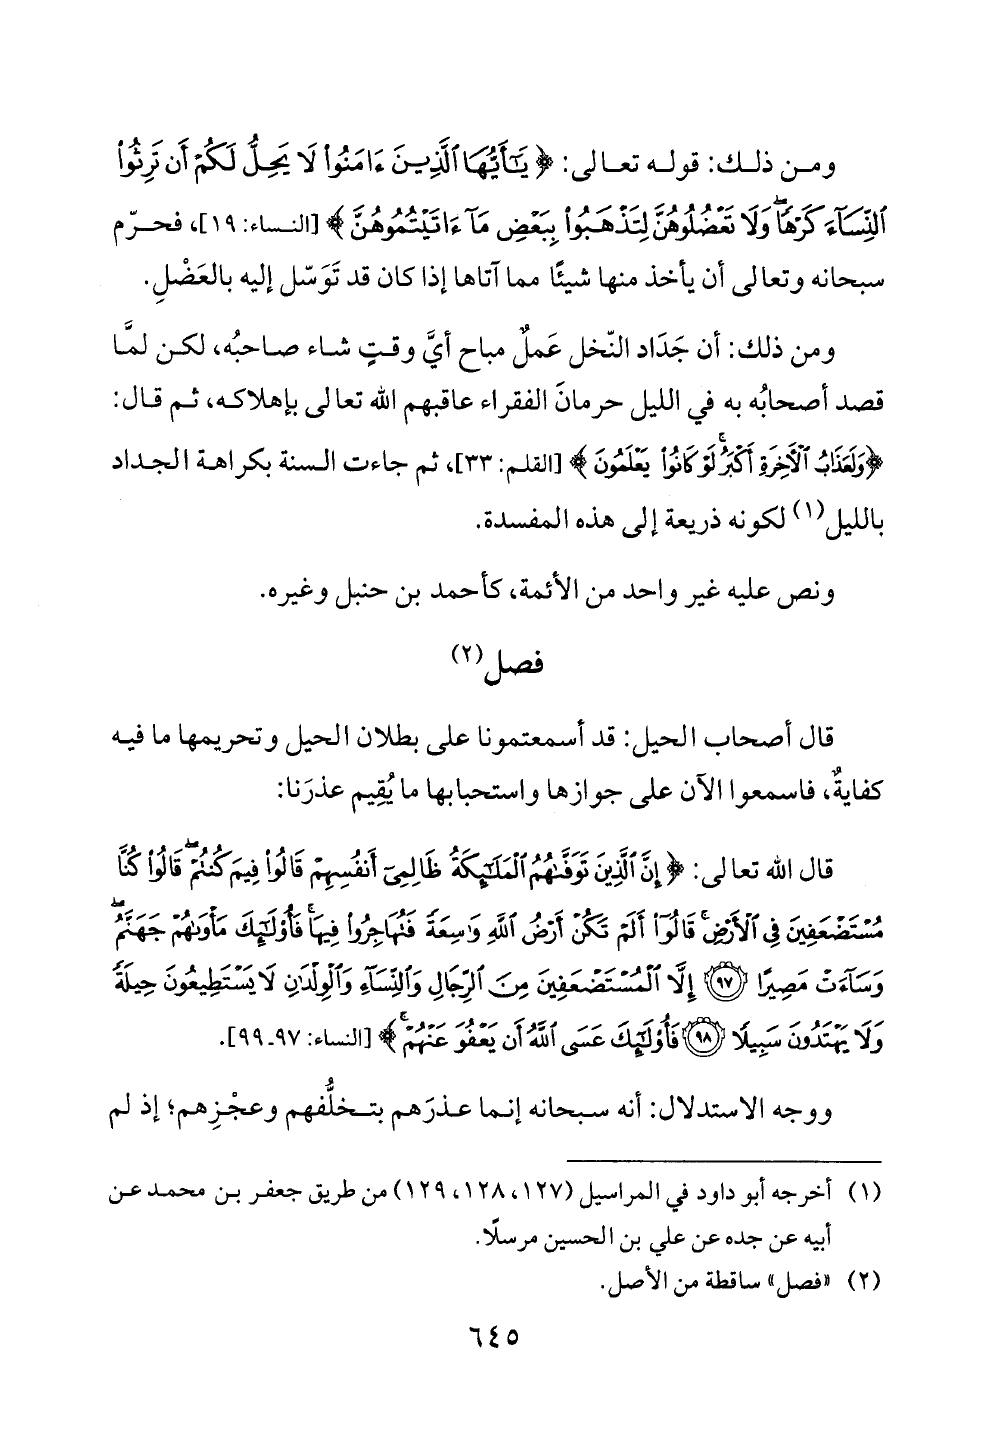 ومن ذلك: قوله تعالى: ﴿يَٰٓأَيُّهَا ٱلَّذِينَ ءَامَنُوا۟ لَا يَحِلُّ لَكُمْ أَن تَرِثُوا۟
ٱلنِّسَآءَ كَرْهًا ۖ وَلَا تَعْضُلُوهُنَّ لِتَذْهَبُوا۟ بِبَعْضِ مَآ ءَاتَيْتُمُوهُنَّ﴾ [النساء: ١٩]، فحرّم
سبحانه وتعالى أن يأخذ منها شيئًا مما آتاها إذا كان قد تَوَسّل إليه بالعَضْلِ.
ومن ذلك: أن جَدَاد النّخل عَملٌ مباح أيَّ وقتٍ شاء صاحبُه، لكن لمَّا
قصد أصحابُه به في الليل حرمانَ الفقراء عاقبهم الله تعالى بإهلاكه، ثم قال:
﴿وَلَعَذَابُ ٱلْءَاخِرَةِ أَكْبَرُ ۚ لَوْ كَانُوا۟ يَعْلَمُونَ﴾ [القلم: ٣٣]، ثم جاءت السنة بكراهة الجداد
بالليل(١) لكونه ذريعة إلى هذه المفسدة.
ونص عليه غير واحد من الأئمة، كأحمد بن حنبل وغيره.
فصل(٢)
قال أصحاب الحيل: قد أسمعتمونا على بطلان الحيل وتحريمها ما فيه
كفايةٌ، فاسمعوا الآن على جوازها واستحبابها ما يُقِيم عذرَنا:
قال الله تعالى: ﴿إِنَّ ٱلَّذِينَ تَوَفَّىٰهُمُ ٱلْمَلَٰٓئِكَةُ ظَالِمِىٓ أَنفُسِهِمْ قَالُوا۟ فِيمَ كُنتُمْ ۖ قَالُوا۟ كُنَّا
مُسْتَضْعَفِينَ فِى ٱلْأَرْضِ ۚ قَالُوٓا۟ أَلَمْ تَكُنْ أَرْضُ ٱللَّهِ وَٰسِعَةً فَتُهَاجِرُوا۟ فِيهَا ۚ فَأُو۟لَٰٓئِكَ مَأْوَىٰهُمْ جَهَنَّمُ ۖ
وَسَآءَتْ مَصِيرًا ٩٧ إِلَّا ٱلْمُسْتَضْعَفِينَ مِنَ ٱلرِّجَالِ وَٱلنِّسَآءِ وَٱلْوِلْدَٰنِ لَا يَسْتَطِيعُونَ حِيلَةً
وَلَا يَهْتَدُونَ سَبِيلًا ٩٨ فَأُو۟لَٰٓئِكَ عَسَى ٱللَّهُ أَن يَعْفُوَ عَنْهُمْ ۚ﴾ [النساء: ٩٧-٩٩].
ووجه الاستدلال: أنه سبحانه إنما عذرَهم بتخلُّفهم وعجْزِهم؛ إذ لم
(١) أخرجه أبو داود في المراسيل (١٢٧، ١٢٨، ١٢٩) من طريق جعفر بن محمد عن
أبيه عن جده عن علي بن الحسين مرسلًا.
(٢) «فصل» ساقطة من الأصل.
٦٤٥